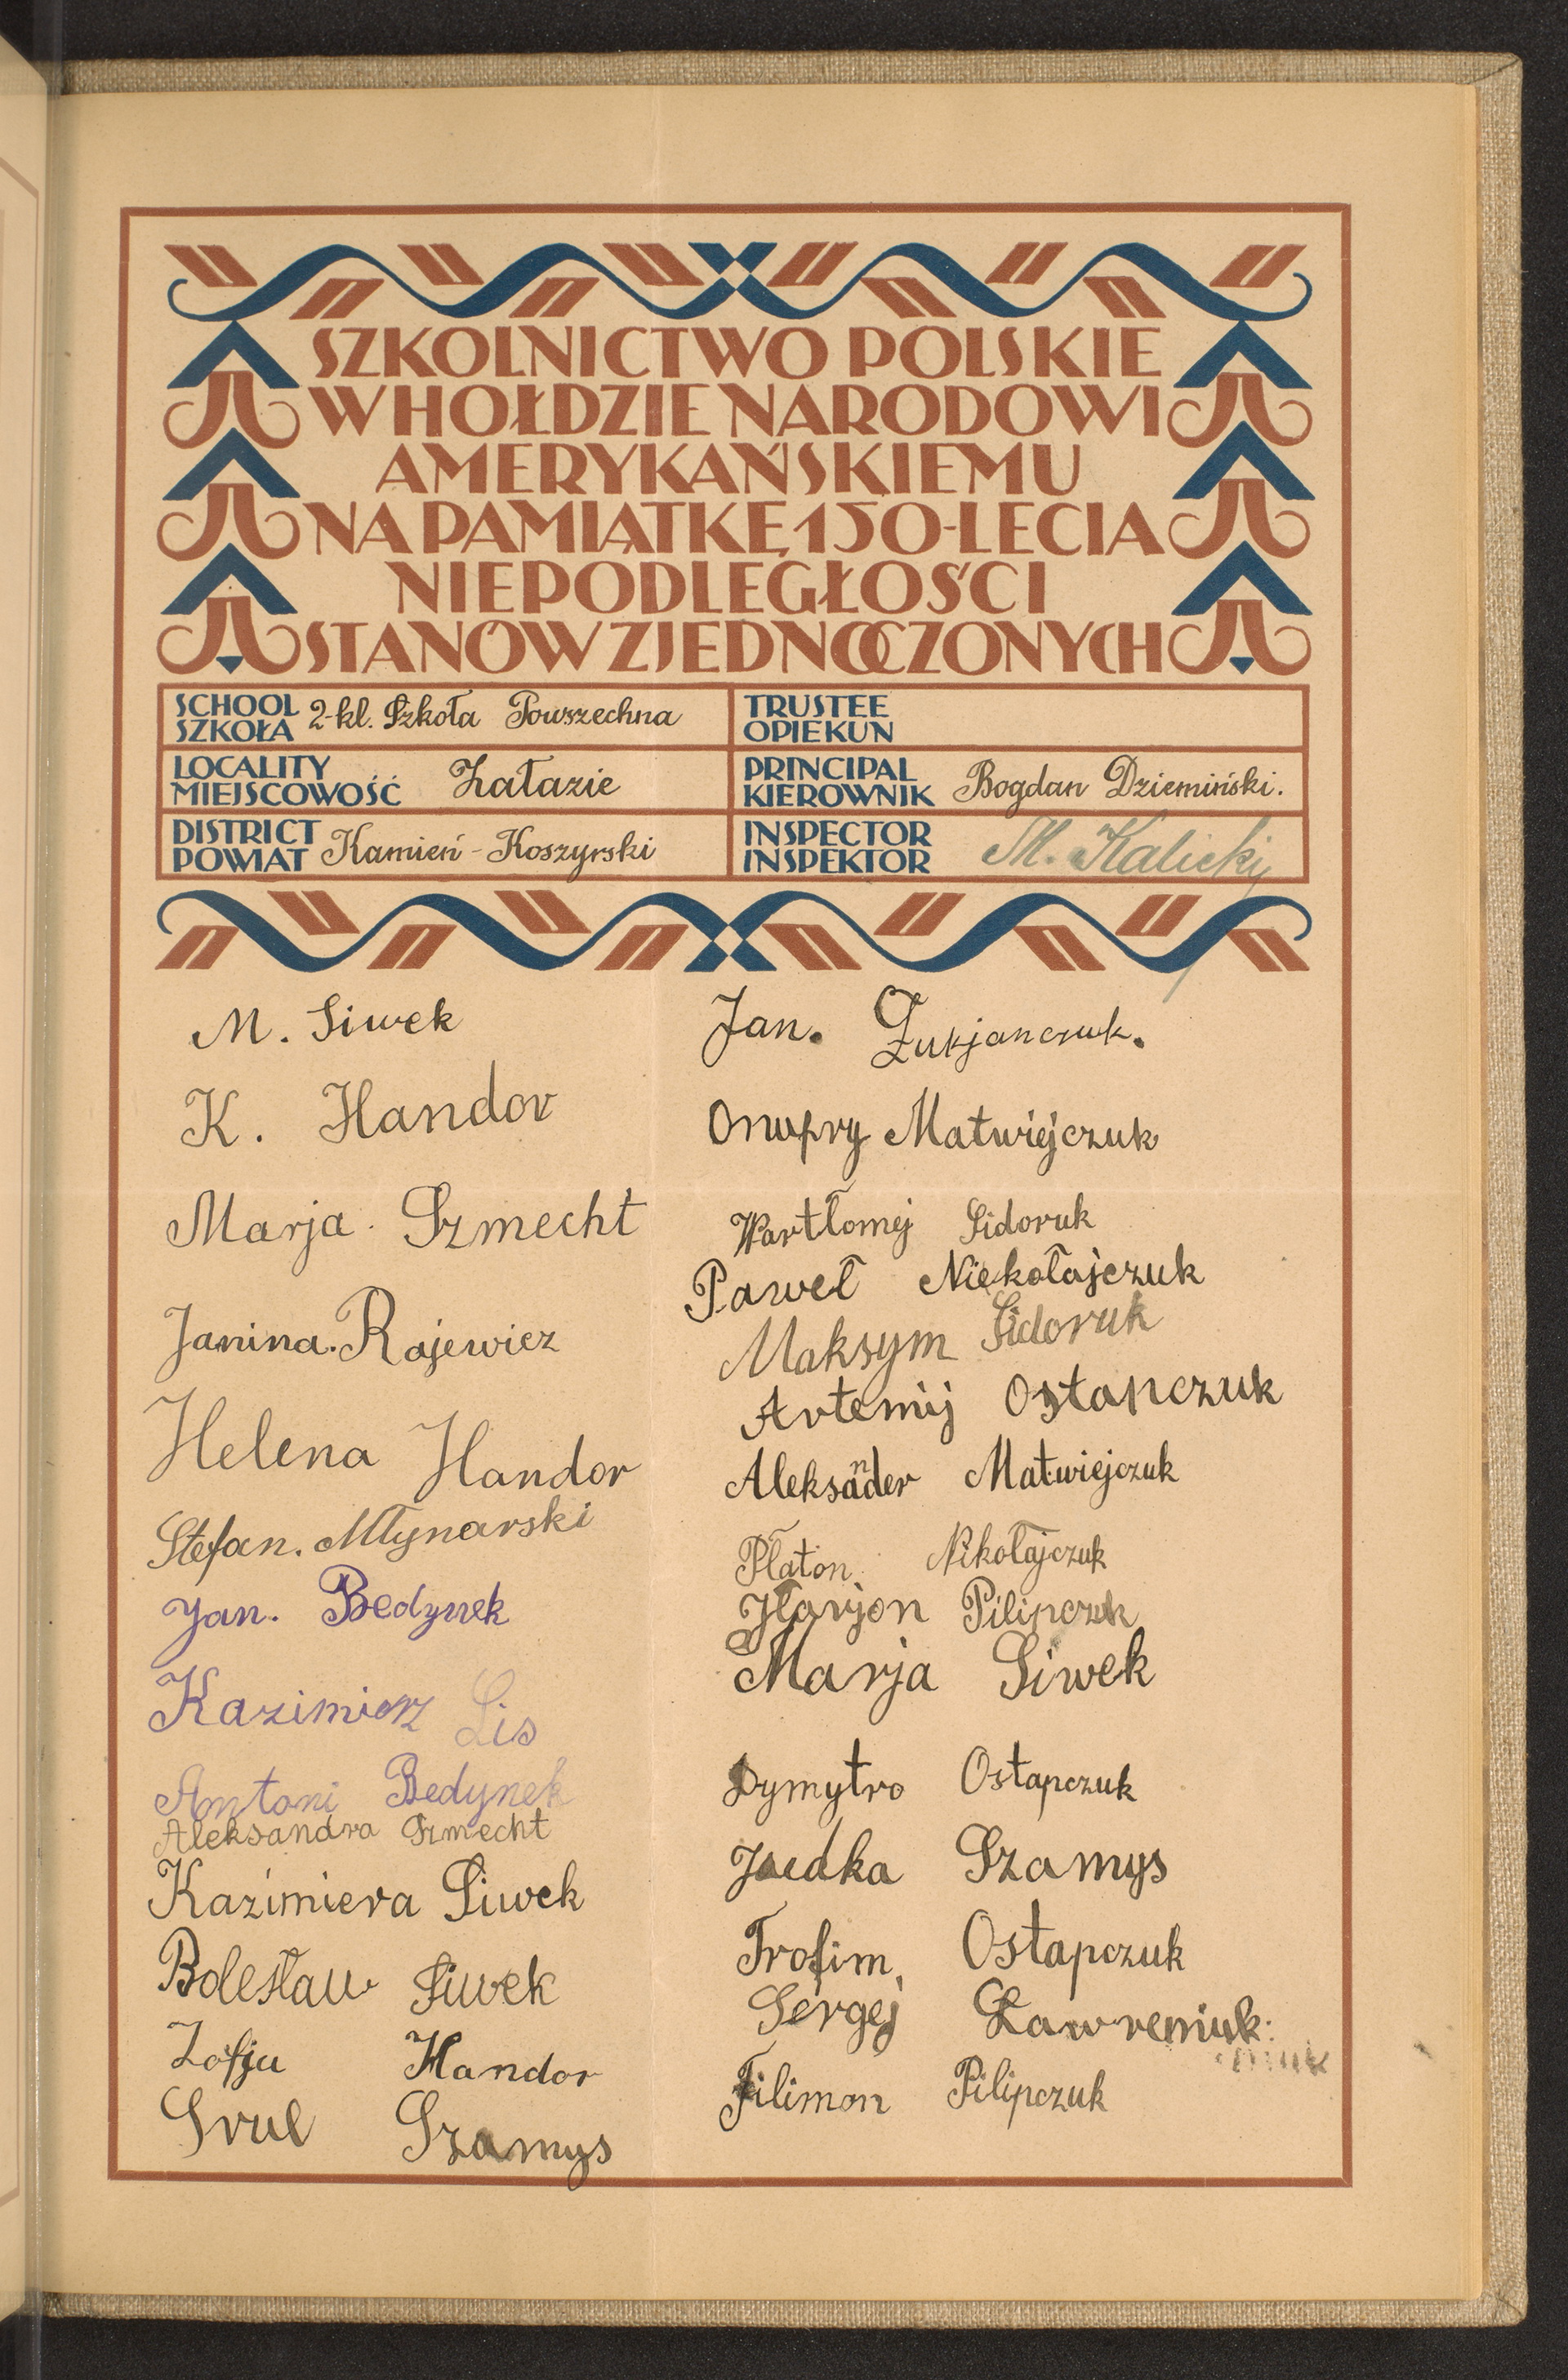 SZKOLNICTWO POLSKIE
W HOŁDZIE NARODOWI
AMERYKAŃSKIEMU
NA PAMIĄTKĘ 150-LECIA
NIEPODLEGŁOŚCI
STANÓW ZJEDNOCZONYCH
SCHOOL
SZKOŁA 2-kl. Szkoła Powszechna
TRUSTEE
OPIEKUN
LOCALITY
MIEJSCOWOŚĆ Załazie
PRINCIPAL
KIEROWNIK Bogdan Dziemiński.
DISTRICT
POWIAT Kamień-Koszyrski
INSPECTOR
INSPEKTOR M. Kalicki
M. Siwek
K. Handor
Marja Szmecht
Janina. Rajewicz
Helena Handor
Stefan. Młynarski
Jan. Bedynek
Kazimierz Lis
Antoni Bedynek
Aleksandra Szmecht
Kazimiera Siwek
Bolesław Siwek
Zofja Handor
Srul Szamys
Jan. Łukjanczuk.
Onufry Matwiejczuk
Wartłomej Sidoruk
Paweł Niekołajczuk
Maksym Sidoruk
Artemij Ostapczuk
Aleksander Matwiejczuk
Płaton Nikołajczuk
Iłarjon Pilipczuk
Marja Siwek
Dymytro Ostapczuk
Szamys
Trofim Ostapczuk
Sergej Ławreniuk
Filimon Pilipczuk